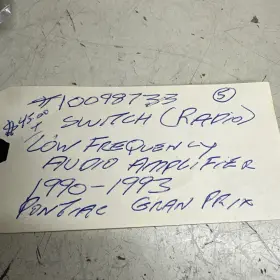 #10098733 (5)
$45.00
+
SWITCH (RADIO)
LOW FREQUENCY
AUDIO AMPLIFIER
1990-1993
PONTIAC GRAN PRIX